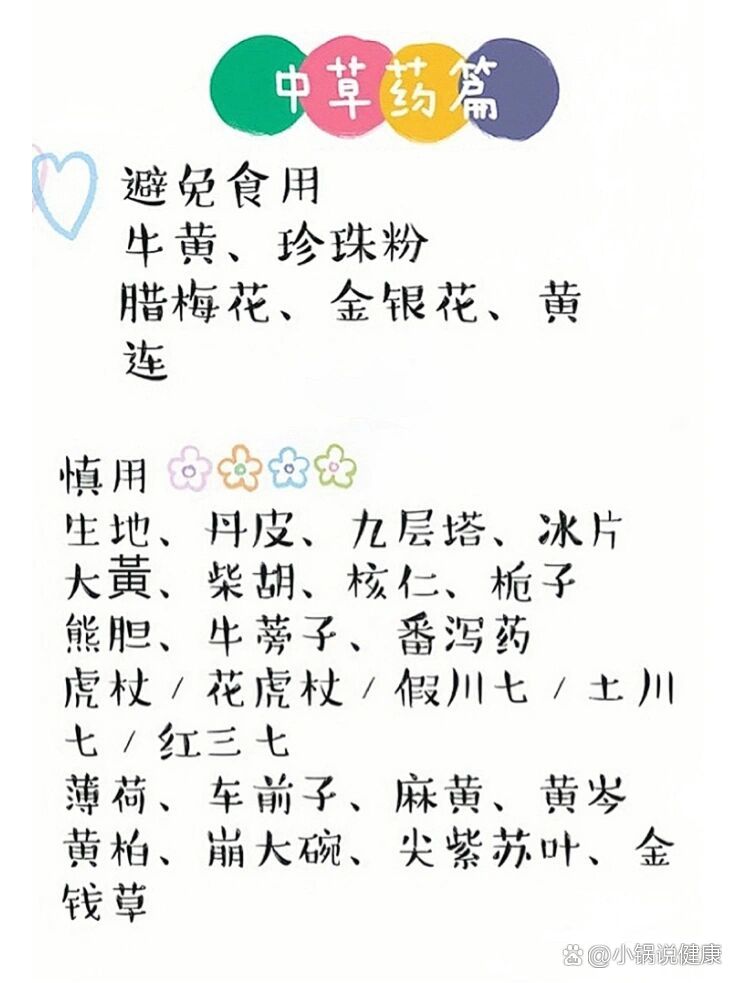 中草药篇
避免食用
牛黄、珍珠粉
腊梅花、金银花、黄
连
慎用
生地、丹皮、九层塔、冰片
大黃、柴胡、核仁、栀子
熊胆、牛蒡子、番泻药
虎杖/花虎杖/假川七/土川
七/红三七
薄荷、车前子、麻黄、黄岑
黄柏、崩大碗、尖紫苏叶、金
钱草
@小锅说健康